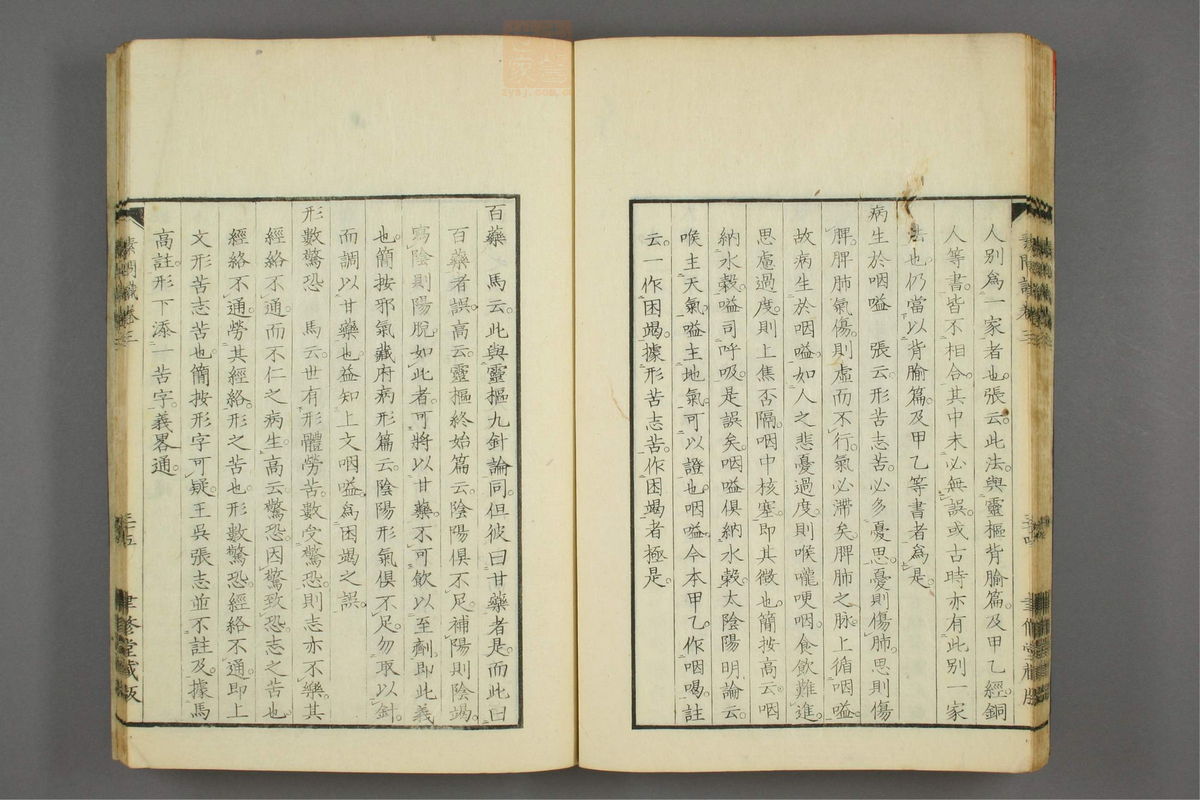 人別爲一家者也。張云。此法與靈樞背腧篇。及甲乙經。銅
人等書。皆不相合。其中未必無誤。或古時亦有此別一家
法也。仍當以背腧篇。及甲乙等書者爲是。
病生於咽嗌　張云。形苦志苦。必多憂思。憂則傷肺。思則傷
脾。脾肺氣傷。則虛而不行。氣必滯矣。脾肺之脉。上循咽嗌。
故病生於咽嗌。如人之悲憂過度。則喉嚨哽咽。食飲難進。
思慮過度。則上焦否隔。咽中核塞。即其徵也。簡按高云。咽
納水穀。嗌司呼吸。是誤矣。咽嗌俱納水穀。太陰陽明論云。
喉主天氣。嗌主地氣。可以證也。咽嗌。今本甲乙。作咽喝。註
云。一作困竭。據形苦志苦。作困竭者極是。
素問識 卷三
百藥　馬云。此與靈樞九針論同。但彼曰甘藥者是。而此曰
百藥者誤。高云。靈樞終始篇云。陰陽俱不足。補陽則陰竭。
寫陰則陽脫。如此者。可將以甘藥。不可飲以至劑。即此義
也。簡按邪氣藏府病形篇云。陰陽形氣俱不足。勿取以針。
而調以甘藥也。益知上文咽嗌。爲困竭之誤。
形數驚恐　馬云。世有形體勞苦。數受驚恐。則志亦不樂。其
經絡不通。而不仁之病生。高云。驚恐。因驚致恐。志之苦也。
經絡不通。勞其經絡。形之苦也。形數驚恐。經絡不通。即上
文形苦志苦也。簡按形字可疑。王吳張志並不註及。據馬
高註。形下添一苦字。義畧通。
素問識 卷三
聿修堂藏板